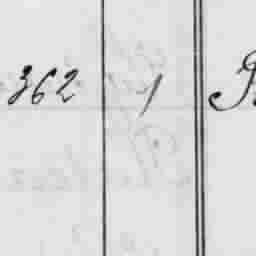 362 1